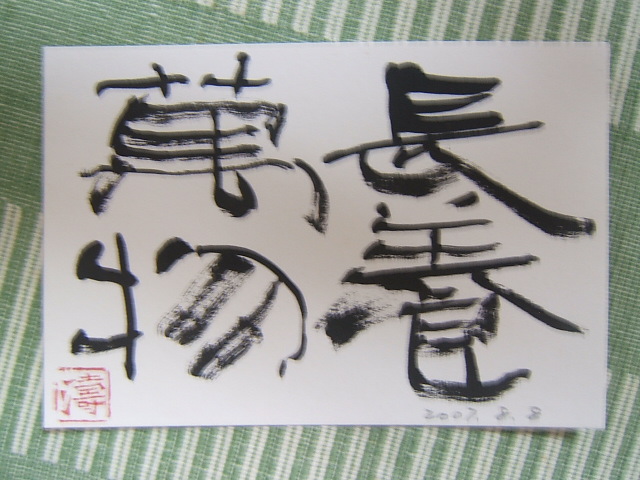 長養
萬物
2007. 8. 8